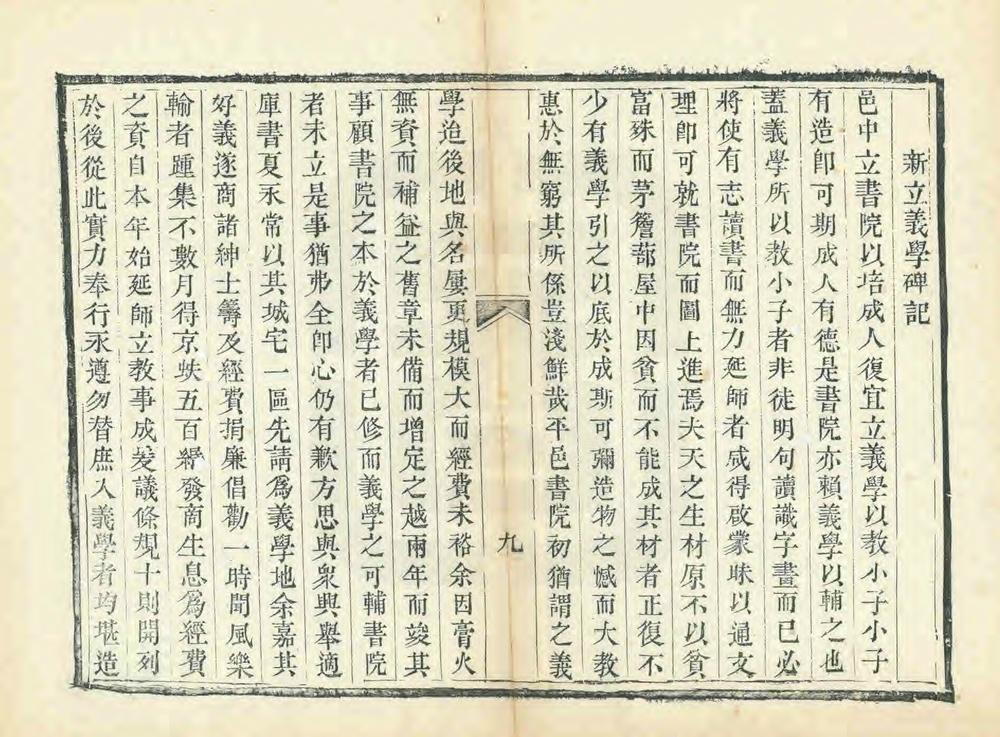 新立義學碑記
邑中立書院以培成人復宜立義學以教小子小子
有造卽可期成人有德是書院亦賴義學以輔之也
蓋義學所以教小子者非徒明句讀識字畫而已必
將使有志讀書而無力延師者咸得啟蒙昧以通文
理卽可就書院而圖上進焉夫天之生材原不以貧
富殊而茅簷蔀屋中因貧而不能成其材者正復不
少有義學引之以底於成斯可彌造物之憾而大教
惠於無窮其所係豈淺鮮哉平邑書院初猶謂之義
九
學迨後地與名屢更規模大而經費未裕余因膏火
無資而補益之舊章未備而增定之越兩年而竣其
事顧書院之本於義學者已修而義學之可輔書院
者未立是事猶弗全卽心仍有歉方思與衆興舉適
庫書夏永常以其城宅一區先請爲義學地余嘉其
好義遂商諸紳士籌及經費捐廉倡勸一時聞風樂
輸者踵集不數月得京蚨五百緡發商生息爲經費
之資自本年始延師立教事成爰議條規十則開列
於後從此實力奉行永遵勿替庶入義學者均堪造